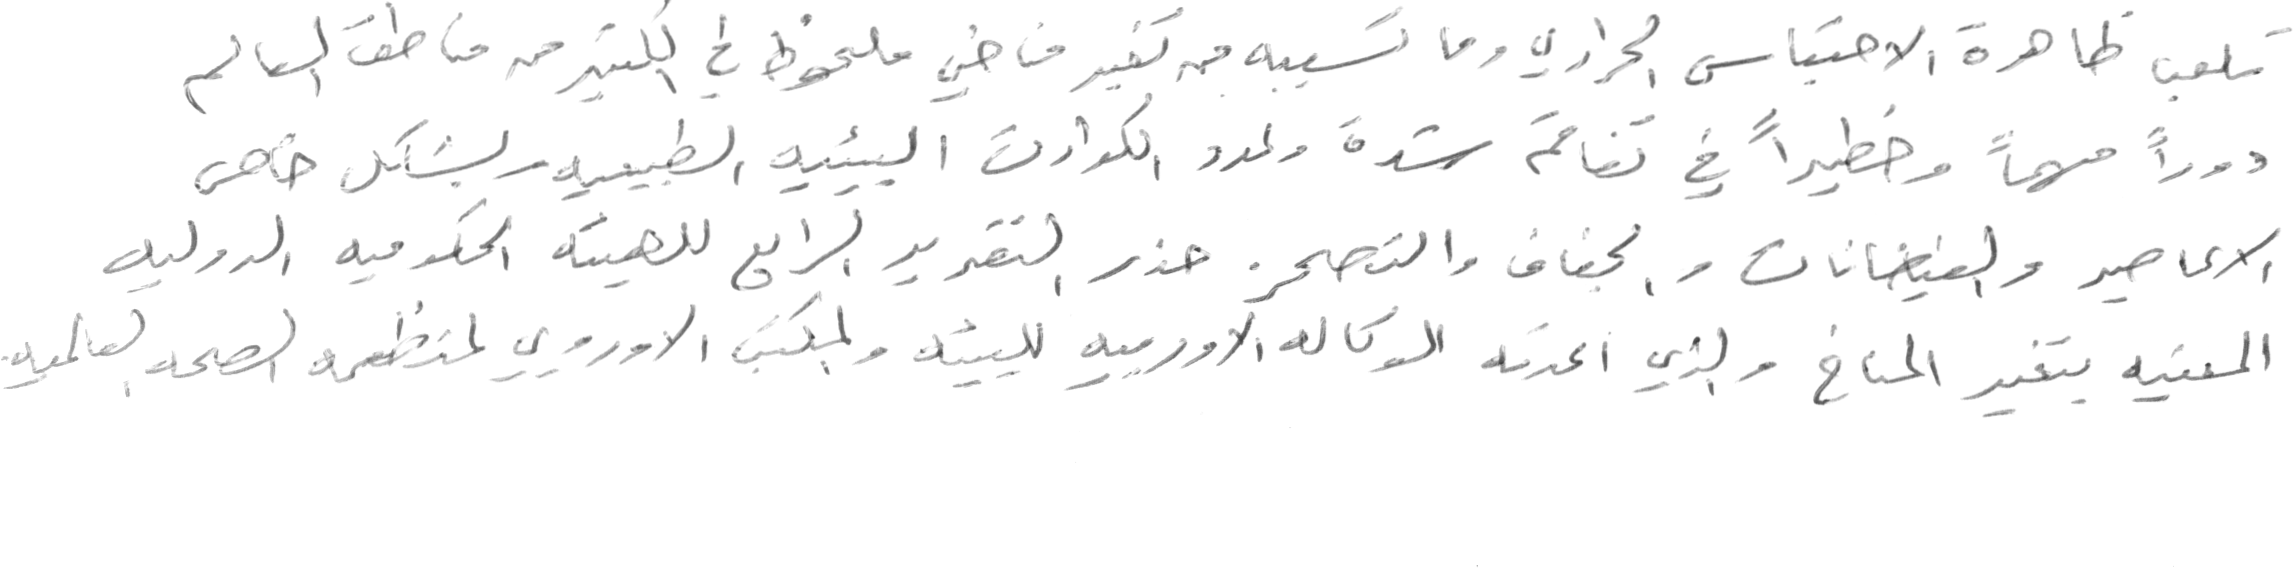 تلعب ظاهرة الاحتباس الحراري وما تسببه من تغير مناخي ملحوظ في الكثير من مناطق العالم
دوراً مهماً وخطيراً في تفاقم شدة وعدد الكوارث البيئيه الطبيعيه وبشكل خاص
الاعاصير والفيضانات والجفاف والتصحر. حذر التقرير الرابع للهيئه الحكوميه الدوليه
المعنيه بتغير المناخ والذي اعدته الوكاله الاوربيه للبيئه والمكتب الاوروبي لمنظمه الصحه العالميه.